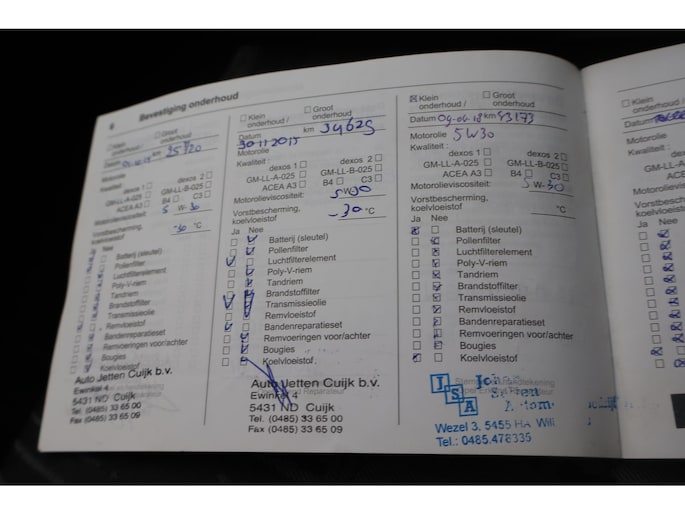 8 Bevestiging onderhoud
Klein
onderhoud /
Groot
onderhoud
Datum km 35720
Motorolie
Kwaliteit:
dexos 1 dexos 2
GM-LL-A-025 GM-LL-B-025
ACEA A3 B4 C3
Motorolieviscositeit: 5 W-30
Vorstbescherming,
koelvloeistof -30 °C
Ja Nee
Batterij (sleutel)
Pollenfilter
Luchtfilterelement
Poly-V-riem
Tandriem
Brandstoffilter
Transmissieolie
Remvloeistof
Bandenreparatieset
Remvoeringen voor/achter
Bougies
Koelvloeistof
Auto Jetten Cuijk b.v.
Ewinkel 4
5431 ND Cuijk
Tel. (0485) 33 65 00
Fax (0485) 33 65 09
Klein
onderhoud /
Groot
onderhoud
Datum 30 11 2015 km 34625
Motorolie
Kwaliteit :
dexos 1 dexos 2
GM-LL-A-025 GM-LL-B-025
ACEA A3 B4 C3
Motorolieviscositeit: 5W-30
Vorstbescherming,
koelvloeistof -30 °C
Ja Nee
Batterij (sleutel)
Pollenfilter
Luchtfilterelement
Poly-V-riem
Tandriem
Brandstoffilter
Transmissieolie
Remvloeistof
Bandenreparatieset
Remvoeringen voor/achter
Bougies
Koelvloeistof
Auto Jetten Cuijk b.v.
Ewinkel 4
5431 ND Cuijk
Tel. (0485) 33 65 00
Fax (0485) 33 65 09
Klein
onderhoud /
Groot
onderhoud
Datum 04-04-18 km 43173
Motorolie 5W30
Kwaliteit :
dexos 1 dexos 2
GM-LL-A-025 GM-LL-B-025
ACEA A3 B4 C3
Motorolieviscositeit: 5 W-30
Vorstbescherming,
koelvloeistof °C
Ja Nee
Batterij (sleutel)
Pollenfilter
Luchtfilterelement
Poly-V-riem
Tandriem
Brandstoffilter
Transmissieolie
Remvloeistof
Bandenreparatieset
Remvoeringen voor/achter
Bougies
Koelvloeistof
JSA
Wezel 3, 5455 HA Wil
Tel.: 0485,478335
Klein
onderhoud /
Datum
Motorolie
Kwaliteit :
GM-LL-A
ACE
Motorolievis
Vorstbesche
koelvloeistof
Ja Nee